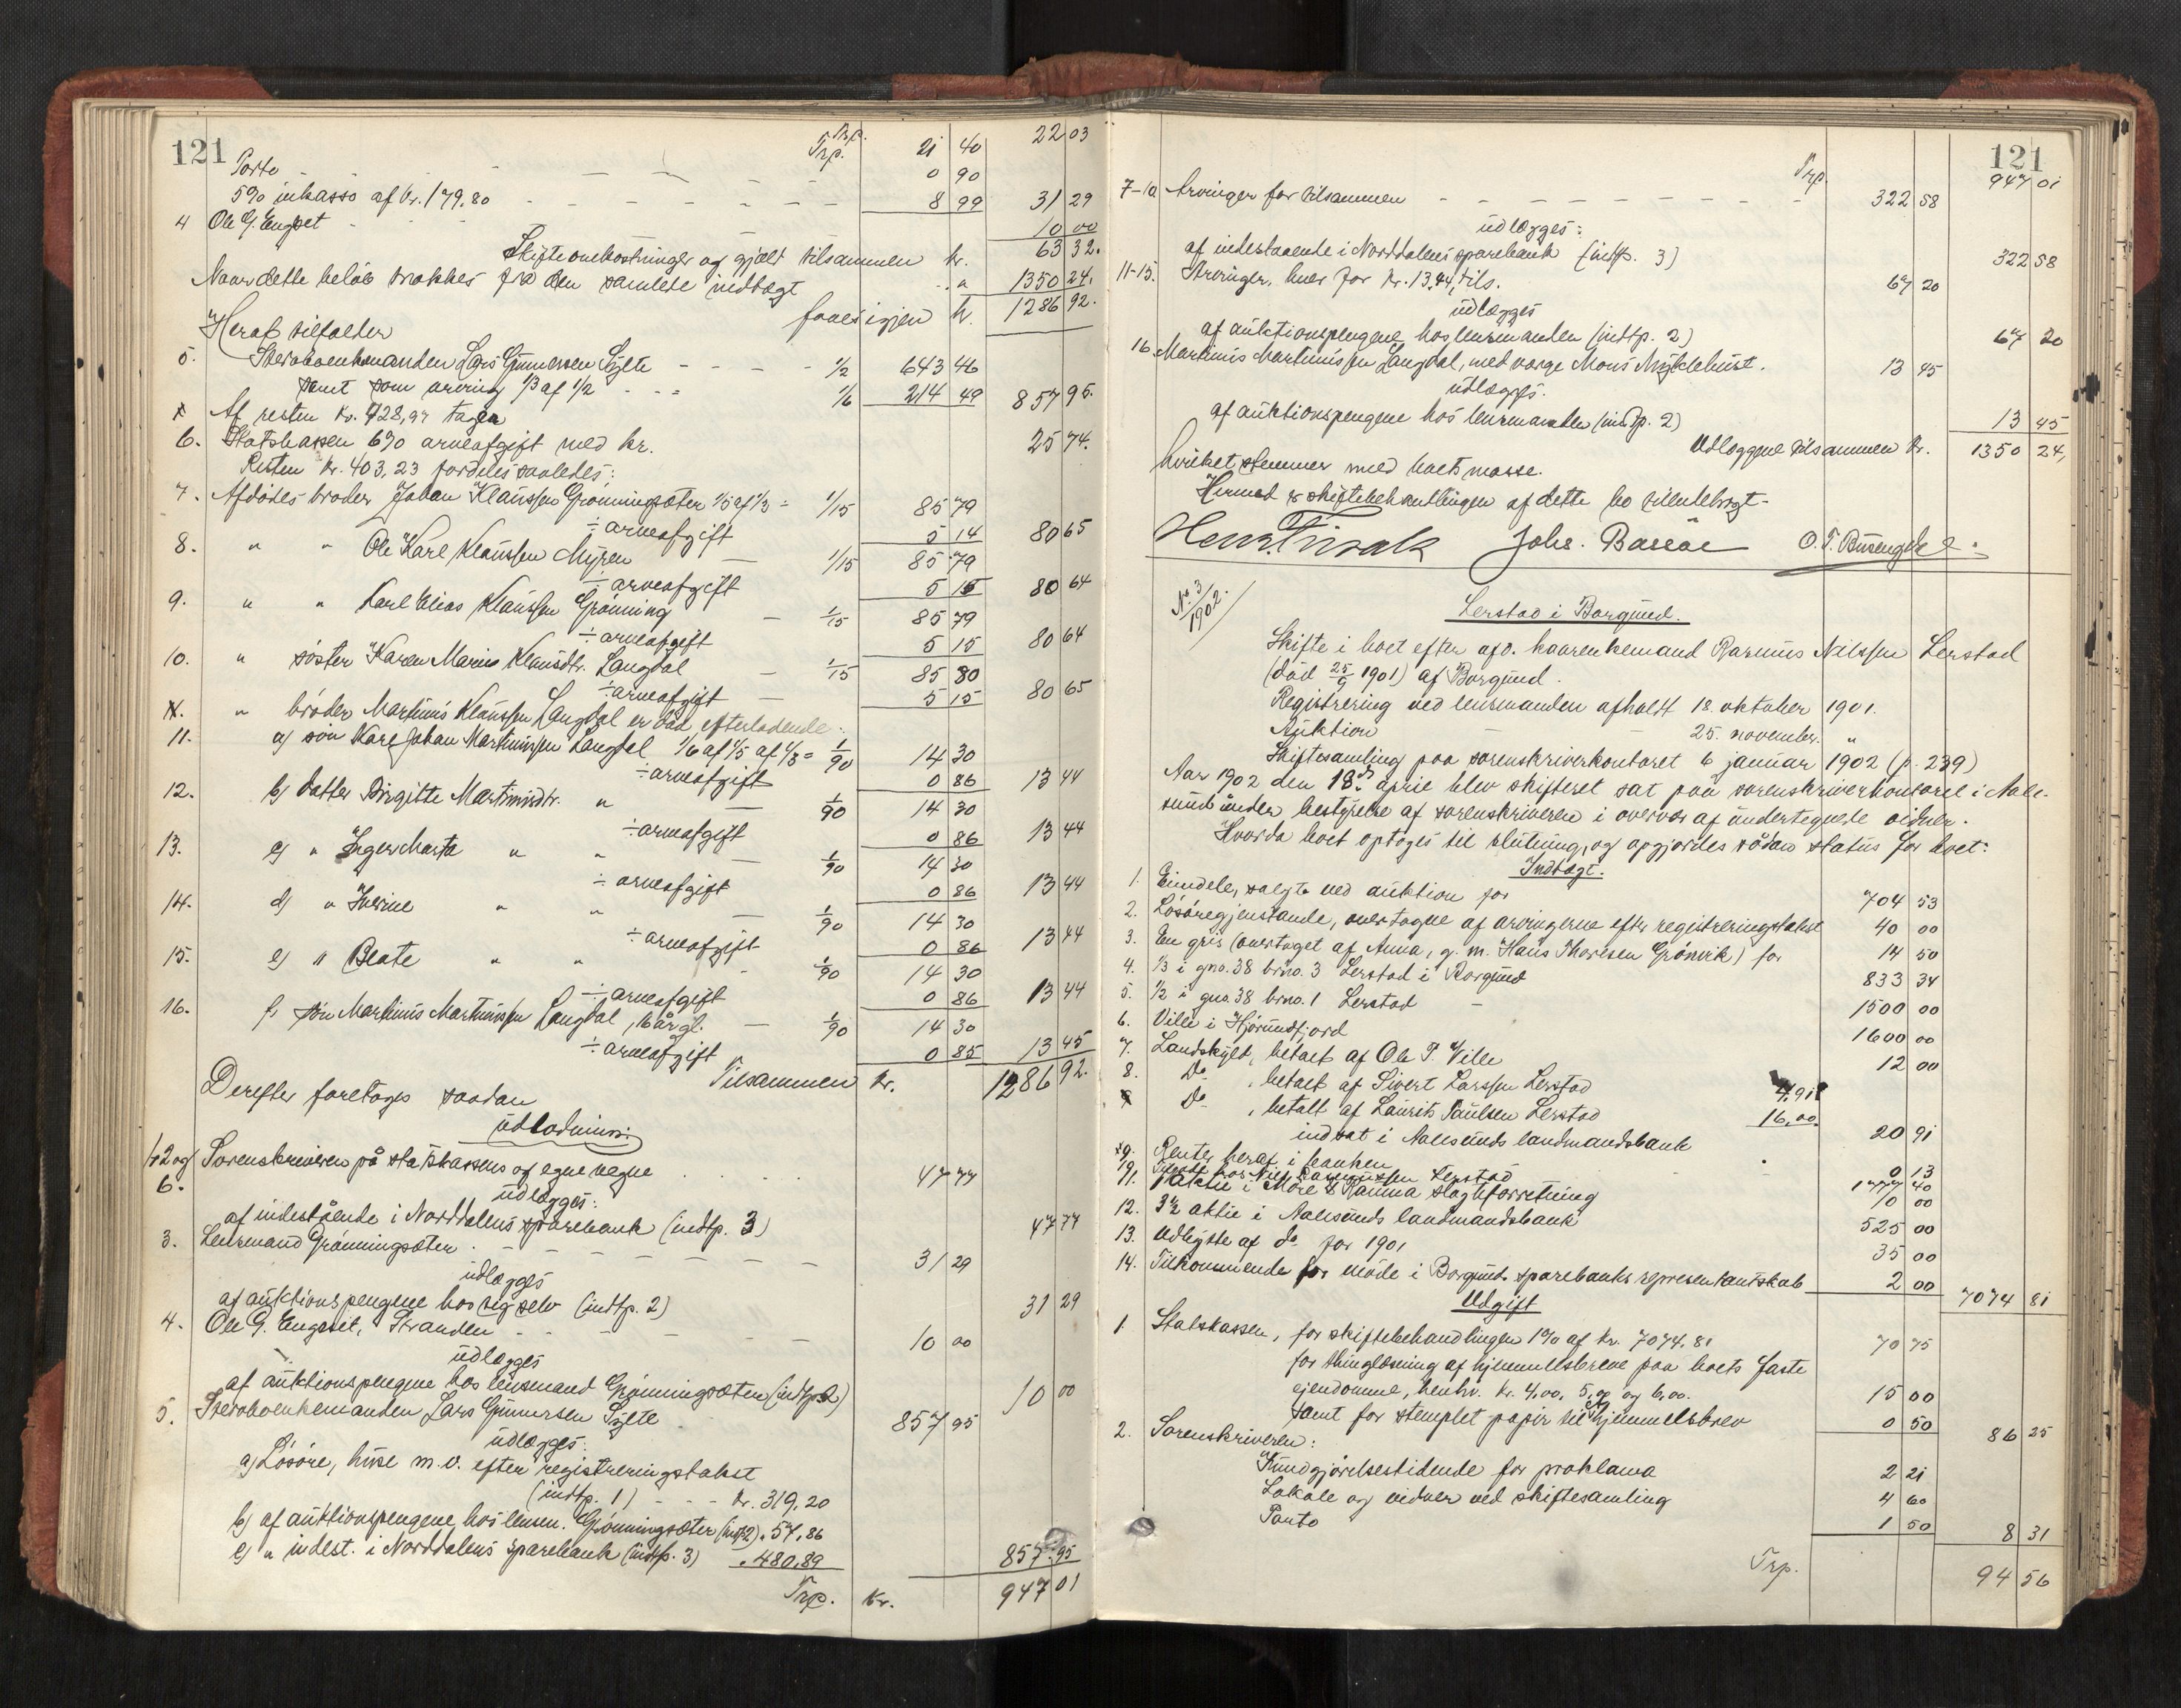 121
Trp. 22 03
Trp. 21 40
Porto - - - - - - 0 90
5% inkasso af kr. 179.80 - - - - - - - 8 99 31 29
4 Ole G. Engset - - - - 10 00
Skifteomkostninger og gjæld tilsammen kr. 63 32.
Naar dette beløb trækkes fra den samlede indtægt " 1350 24.
faaes igjen kr. 1286 92.
Heraf tilfalder
5. Stervboenkemanden Lars Gunnersen Sylte - - - - 1/2 643 46
samt som arving 1/3 af 1/2 - - - 1/6 214 49 857 95.
Af resten kr. 428,97 tager
6. Statskassen 6% arveafgift med kr. 25 74.
Resten kr. 403,23 fordeles saaledes:
7. Afdødes broder Johan Klaussen Grønningsæter 1/5 af 1/3 = 1/15 85 79
÷ arveafgift 5 14 80 65
8. " " Ole Karl Klaussen Myren — 1/15 85 79
÷ arveafgift 5 15 80 64
9. " " Karl Elias Klaussen Grønning — 1/15 85 79
÷ arveafgift 5 15 80 64
10. " søster Karen Marie Klausdtr. Langdal — 1/15 85 80
÷ arveafgift — 5 15 80 65
" broder Martinus Klaussen Langdal er død efterladende:
11. a) søn Karl Johan Martinussen Langdal 1/6 af 1/5 af 1/3 = 1/90 14 30
÷ arveafgift 0 86 13 44
12. b) datter Birgitte Martinusdtr. " — 1/90 14 30
÷ arveafgift 0 86 13 44
13. c) " Inger Marta " " — 1/90 14 30
÷ arveafgift 0 86 13 44
14. d) " Iverine " " — 1/90 14 30
÷ arveafgift 0 86 13 44
15. e) " Beate " " - 1/90 14 30
÷ arveafgift 0 86 13 44
16. f) søn Martinus Martinussen Langdal, 16 år gl. — 1/90 14 30
÷ arveafgift 0 85 13 45
Tilsammen kr. 1286 92.
Derefter foretages saadan
udlodning:
1, 2 og 6. Sorenskriveren på statskassens og egne vegne . . . . 47 77
udlægges:
af indestående i Norddalens sparebank (indtp. 3) 47 77
3. Lensmand Grønningsæter - - - - - - - 31 29
udlægges
af auktionspengene hos sig selv (indtp. 2) 31 29
4. Ole G. Engeset, Stranden - - - - - - 10 00
udlægges
af auktionspengene hos lensmand Grønningsæter (indtp. 2) 10 00
5. Stervboenkemanden Lars Gunnersen Sylte 857 95
udlægges:
a) Løsøre, huse m. v. efter registreringstakst
(indtp. 1) - - - kr. 319.20
b) af auktionspengene hos lensm. Grønningsæter (indtp. 2) " 57,86
c) " indest. i Norddalens sparebank (indtp. 3) " 480,89
857.95
Trp. Kr. 947 01
121
Trp. 947 01
7-10 Arvinger for tilsammen - - - - - - - - - 322 58
udlægges:
af indestaaende i Norddalens sparebank (indtp. 3) 322 58
11-15. Arvinger, hver for kr. 13.44, tils. 67 20
udlægges
af auktionspengene hos lensmanden (indtp. 2) 67 20
16 Martinus Martinussen Langdal, med værge Mons Myklebust. 13 45
udlægges.
af auktionspengene hos lensmanden (indtp. 2) 13 45
Udlæggene tilsammen kr. 1350 24,
hvilket stemmer med boets masse.
Hermed er skiftebehandlingen af dette bo tilendebragt-
Johs. Bassøe
No 3/1902.
Lerstad i Borgund.
Skifte i boet efter afd. kaarenkemand Rasmus Nilssen Lerstad
(død 25/9 1901) af Borgund.
Registrering ved lensmanden afholdt 18. oktober 1901.
Auktion — — 25. november. "
Skiftesamling paa sorenskriverkontoret 6 januar 1902 (p. 239)
Aar 1902 den 18de april blev skifteret sat paa sorenskriverkontoret i Aale-
sund under bestyrelse af sorenskriveren i overvær af undertegnede vidner.
Hvorda boet optoges til slutning, og opgjordes sådan status for boet:
Indtægt.
1. Eiendele, solgte ved auktion for 704 53
2. Løsøregjenstande, overtagne af arvingerne efter registreringstakst 40 00
3. En gris (overtaget af Anna, g. m. Hans Thoresen Grønvik) for 14 50
4. 1/3 i gno. 38 brno. 3 Lerstad i Borgund 833 34
5. 1/2 i gno. 38 brno. 1 Lerstad — 1500 00
6. Ville i Hjørundfjord 1600 00
7. Landskyld, betalt af Ole P. Ville 12 00
8. Do , betalt af Sivert Larssen Lerstad 4.91
Do , betalt af Laurits Paulsen Lerstad 16.00.
indsat i Aalesunds landmandsbank 20 91
9. Renter heraf i banken 0 13
Nils Rasmussen Lerstad 1777 40
11. 1 aktie i Møre & Rauma slagtforretning 10 00
12. 3 1/2 aktie i Aalesunds landmandsbank 525 00
13. Udbytte af do for 1901 35 00
14. Tilkommende for møde i Borgunds sparebanks representantskab 2 00 7074 81
Udgift
1 Statskassen, for skiftebehandlingen 1% af kr. 7074.81 70 75
for thinglæsning af hjemmelsbreve paa boets faste
ejendomme, henhv. kr. 4,00, 5,00 og 6,00. 15 00
samt for stemplet papir til hjemmelsbrev 0 50 86 25
2. Sorenskriveren:
Kundgjørelsestidende for proklama 2 21
Lokale og vidner ved skiftesamling 4 60
Porto 1 50 8 31
Trp. 94 56